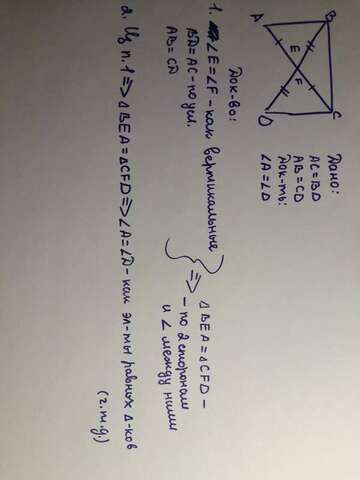 A B
E
F
D C
Дано:
AC = BD
AB = CD
Док-ть:
∠A = ∠D
Док-во:
1. ∠E = ∠F - как вертикальные
BD = AC - по усл.
AB = CD
=> △BEA = △CFD -
- по 2 сторонам
и ∠ между ними
2. Из п.1 => △BEA = △CFD => ∠A = ∠D - как эл-ты равных △-ков
(ч.т.д.)